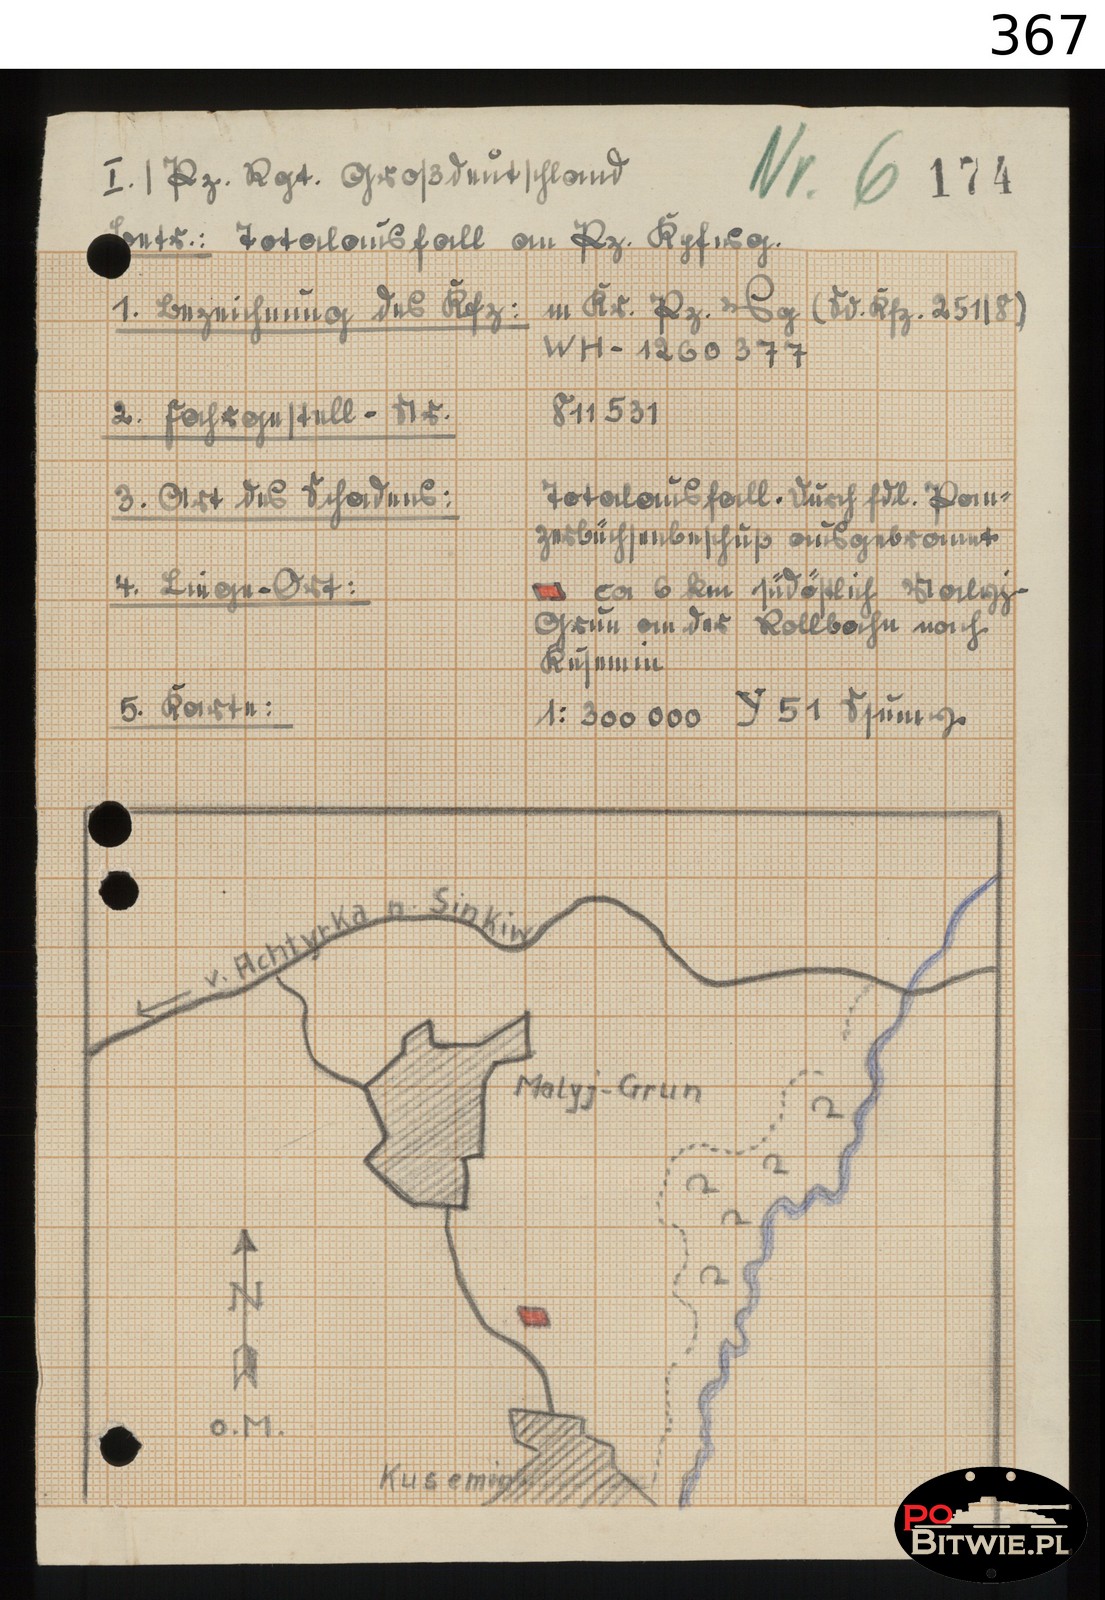 367
I./Pz. Rgt. Großdeutschland
Nr. 6 174
Betr.: Totalausfall an Pz. Kpfwg.
1. Bezeichnung des Kfz: m Kr. Pz. Wg (Sd. Kfz. 251/8)
WH-1260377
2. Fahrgestell-Nr. 811531
3. Art des Schadens: Totalausfall. Durch fdl. Pan-
zerbüchsenbeschuß ausgebrannt
4. Liege-Ort: ca 6 km südöstlich Malyj-
Grun an der Rollbahn nach
Kusemin
5. Karte: 1:300 000 Y 51 Ssumy.
v. Achtyrka n. Sinkiw
Malyj-Grun
N
o.M.
Kusemin
PO
BITWIE.PL